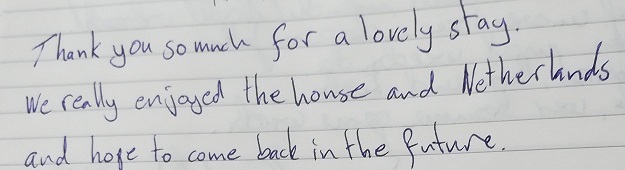 Thank you so much for a lovely stay.
We really enjoyed the house and Netherlands
and hope to come back in the future.